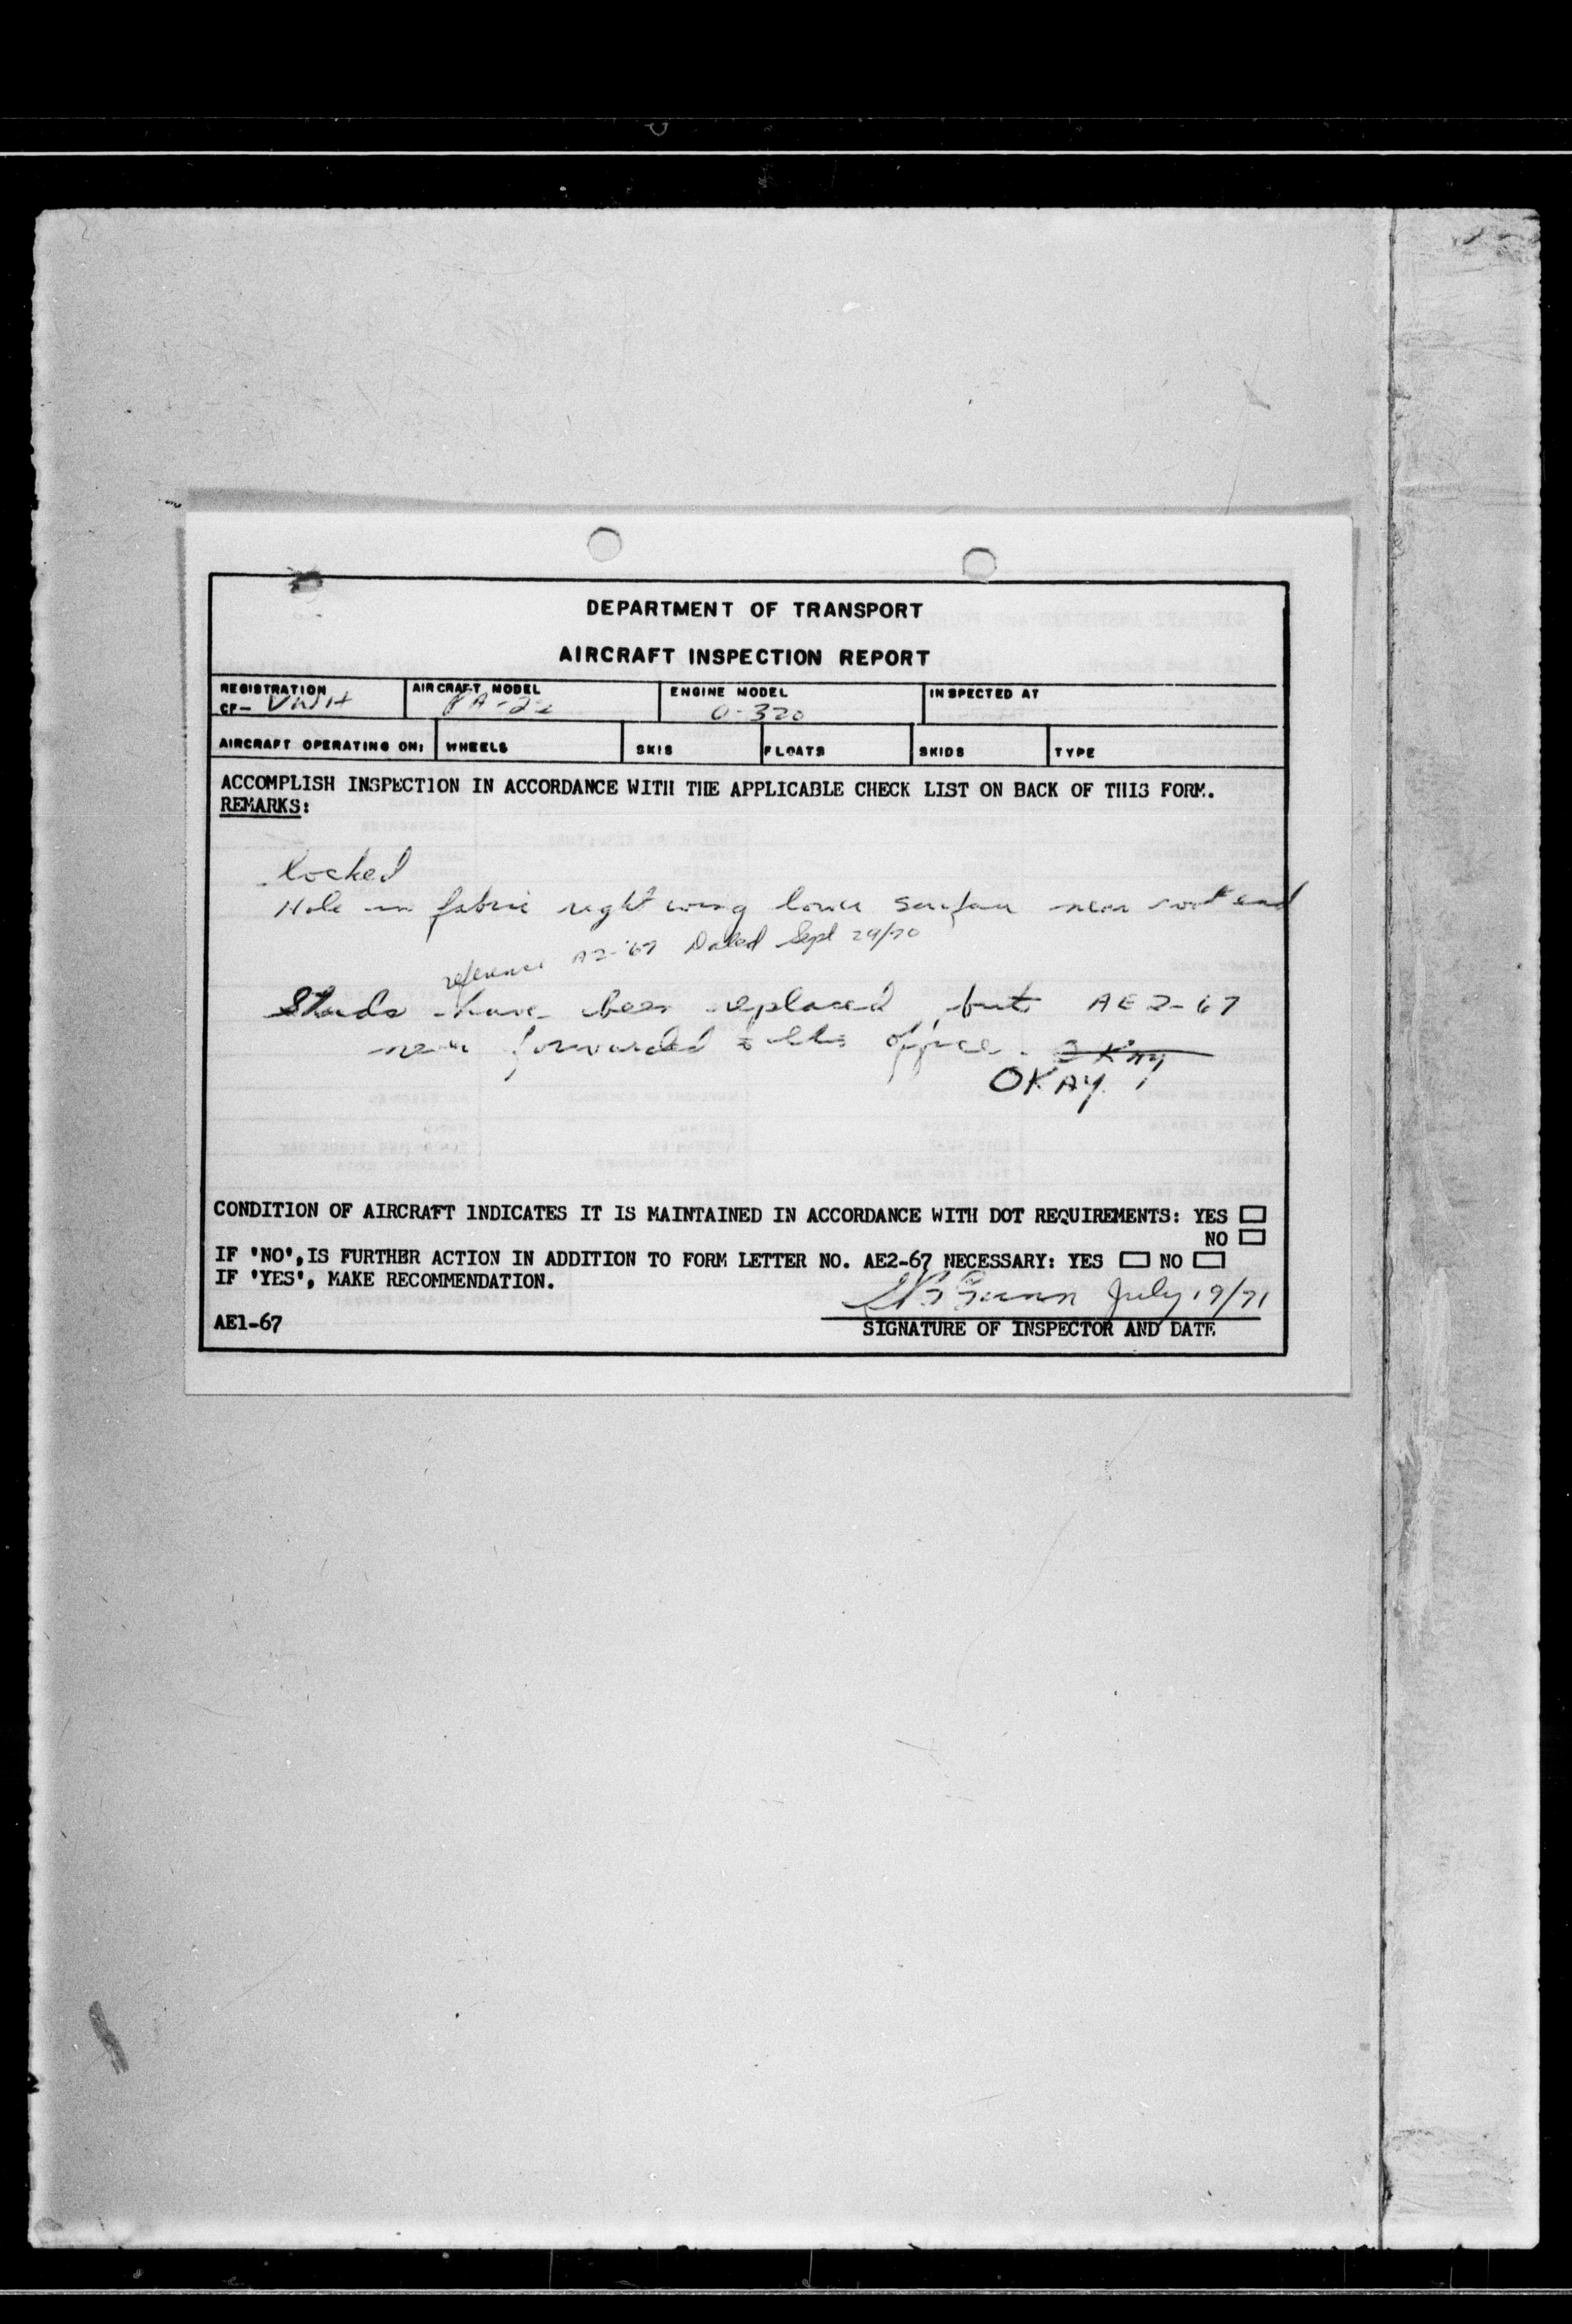 DEPARTMENT OF TRANSPORT
AIRCRAFT INSPECTION REPORT
REGISTRATION AIRCRAFT MODEL ENGINE MODEL INSPECTED AT
CF- VWH PA-22 O-320
AIRCRAFT OPERATING ON: WHEELS SKIS FLOATS SKIDS TYPE
ACCOMPLISH INSPECTION IN ACCORDANCE WITH THE APPLICABLE CHECK LIST ON BACK OF THIS FORM.
REMARKS:
locked
Hole in fabric right wing lower surface near root end
reference A2-67 Dated Sept 29/70
Studs have been replaced, but AE2-67
never forwarded to this office. OKAY
OKAY.
CONDITION OF AIRCRAFT INDICATES IT IS MAINTAINED IN ACCORDANCE WITH DOT REQUIREMENTS: YES
NO
IF 'NO', IS FURTHER ACTION IN ADDITION TO FORM LETTER NO. AE2-67 NECESSARY: YES NO
IF 'YES', MAKE RECOMMENDATION.
Gunn July 19/71
AE1-67
SIGNATURE OF INSPECTOR AND DATE